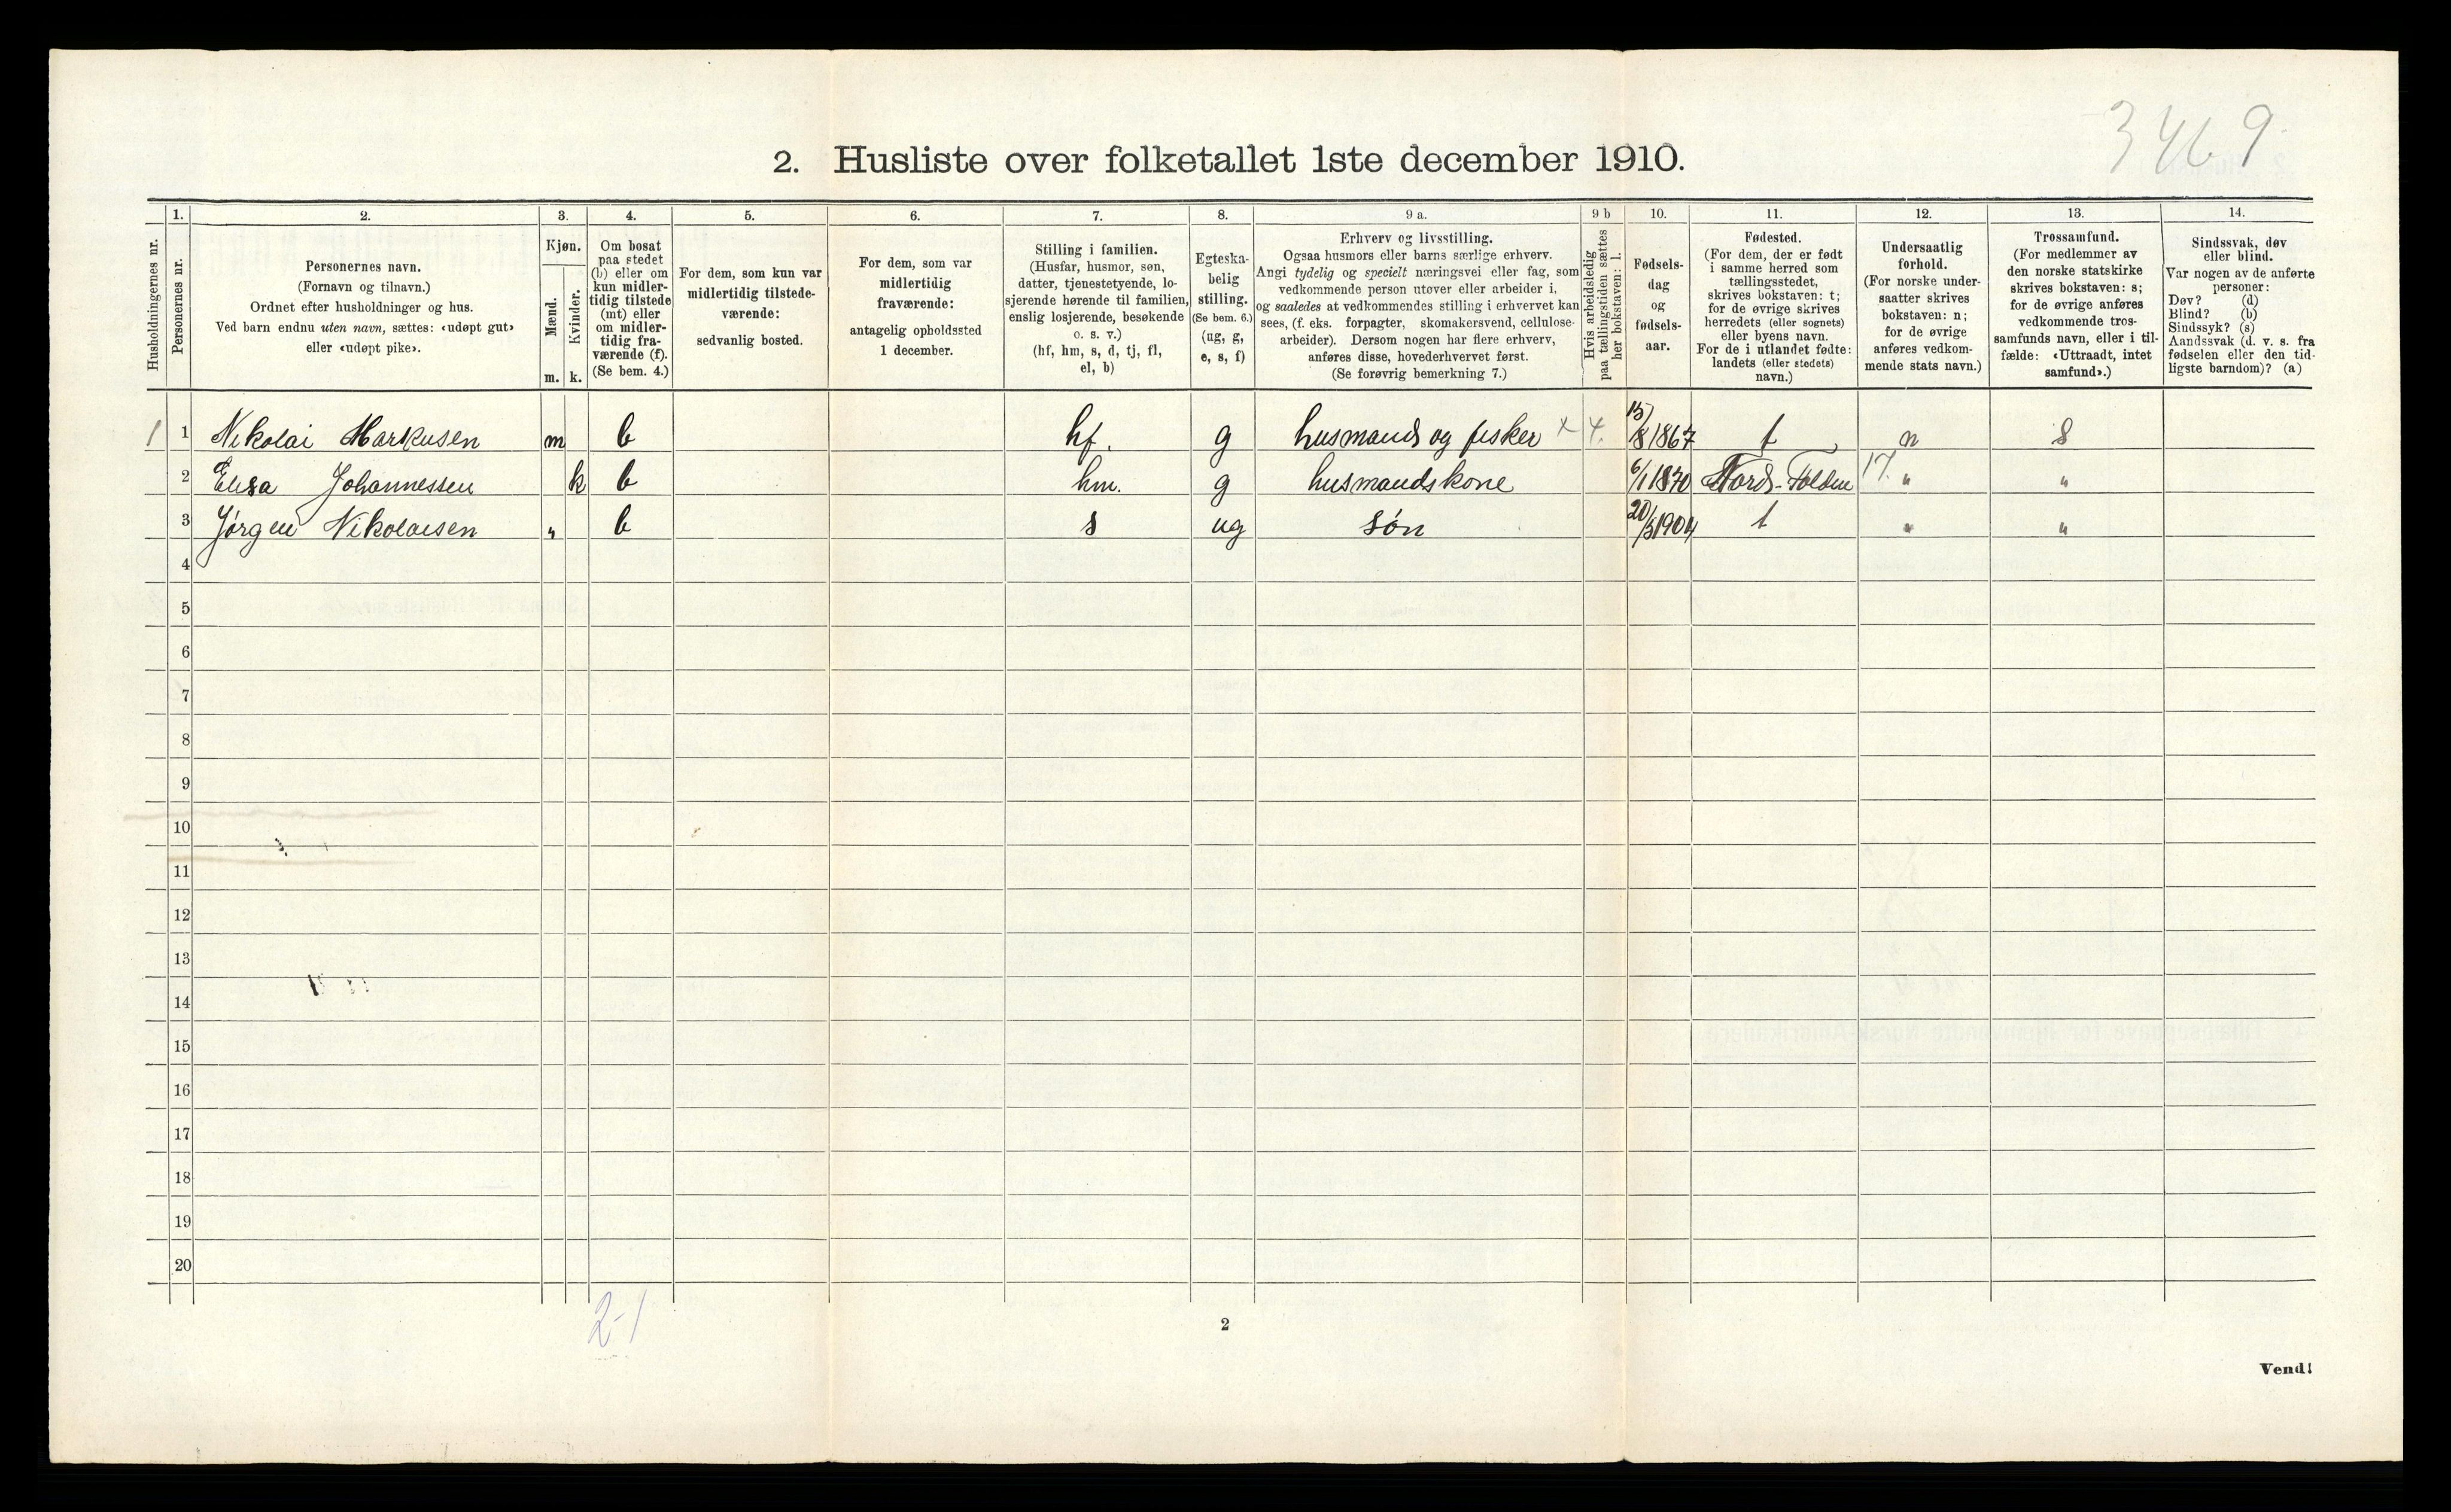 3469
2. Husliste over folketallet 1ste december 1910.
1. 2. 3. 4. 5. 6. 7. 8. 9 a. 9 b 10. 11. 12. 13. 14.
Husholdningernes nr.
Personernes nr.
Personernes navn.
(Fornavn og tilnavn.)
Ordnet efter husholdninger og hus.
Ved barn endnu uten navn, sættes: «udøpt gut»
eller «udøpt pike».
Kjøn.
Mænd.
Kvinder.
m. k.
Om bosat
paa stedet
(b) eller om
kun midler-
tidig tilstede
(mt) eller
om midler-
tidig fra-
værende (f).
(Se bem. 4.)
For dem, som kun var
midlertidig tilstede-
værende:
sedvanlig bosted.
For dem, som var
midlertidig
fraværende:
antagelig opholdssted
1 december.
Stilling i familien.
(Husfar, husmor, søn,
datter, tjenestetyende, lo-
sjerende hørende til familien,
enslig losjerende, besøkende
o. s. v.)
(hf, hm, s, d, tj, fl,
el, b)
Egteska-
belig
stilling.
(Se bem. 6.)
(ug, g,
e, s, f)
Erhverv og livsstilling.
Ogsaa husmors eller barns særlige erhverv.
Angi tydelig og specielt næringsvei eller fag, som
vedkommende person utøver eller arbeider i,
og saaledes at vedkommendes stilling i erhvervet kan
sees, (f. eks. forpagter, skomakersvend, cellulose-
arbeider). Dersom nogen har flere erhverv,
anføres disse, hovederhvervet først.
(Se forøvrig bemerkning 7.)
Hvis arbeidsledig
paa tællingstiden sættes
her bokstaven: l.
Fødsels-
dag
og
fødsels-
aar.
Fødested.
(For dem, der er født
i samme herred som
tællingsstedet,
skrives bokstaven: t;
for de øvrige skrives
herredets (eller sognets)
eller byens navn.
For de i utlandet fødte:
landets (eller stedets)
navn.)
Undersaatlig
forhold.
(For norske under-
saatter skrives
bokstaven: n;
for de øvrige
anføres vedkom-
mende stats navn.)
Trossamfund.
(For medlemmer av
den norske statskirke
skrives bokstaven: s;
for de øvrige anføres
vedkommende tros-
samfunds navn, eller i til-
fælde: «Uttraadt, intet
samfund».)
Sindssvak, døv
eller blind.
Var nogen av de anførte
personer:
Døv? (d)
Blind? (b)
Sindssyk? (s)
Aandssvak (d. v. s. fra
fødselen eller den tid-
ligste barndom)? (a)
1 1 Nikolai Markusen m b hf. g husmand og fisker x 4. 15/8 1867 t n s
2 Elisa Johannessen k b hm. g husmandskone 6/1 1870 Nord-Folden 17. " "
3 Jörgen Nikolaisen " b s ug sön 20/5 1904 t " "
4
5
6
7
8
9
10
11
12
13
14
15
16
17
18
19
20
2-1
2
Vend!